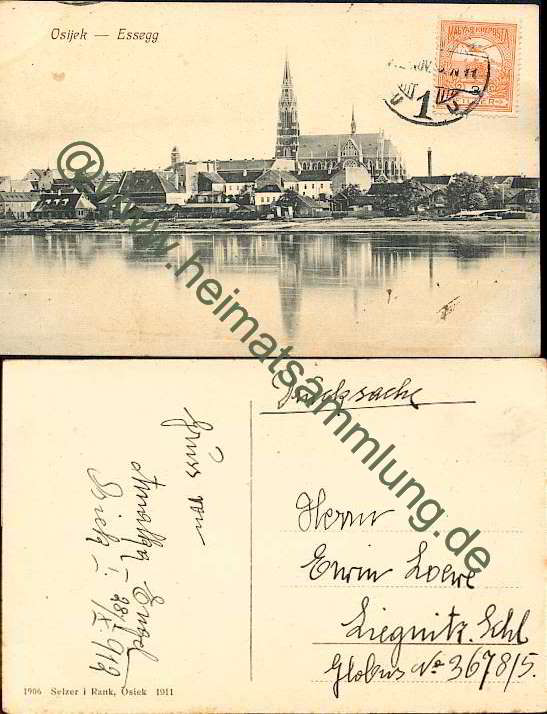 Osijek — Essegg
MAGYAR KIR. POSTA
1
@www.heimatsammlung.de
Drucksache
Gruss von
Amalka Engel
Herrn
Erwin Loewe
Liegnitz. Schl
Globus No 3678/5.
1906 Selzer i Rank, Osiek 1911